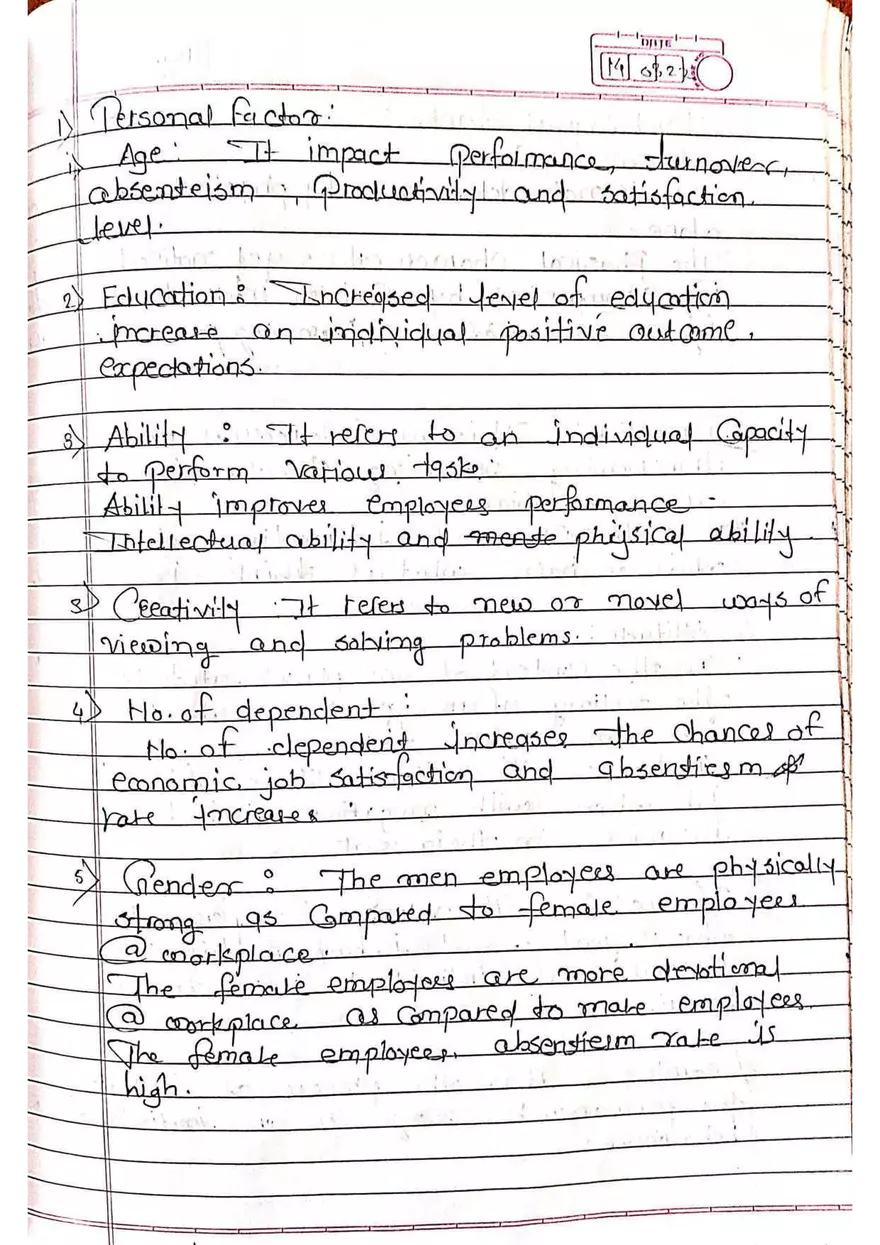 DATE
1) Personal Factor:
i) Age: It impact performance, turnover,
absenteism, Productivity and satisfaction
level.
2) Education: Increased level of education
increase an individual positive outcome,
expectations.
3) Ability: It refers to an individual Capacity
to perform various task.
Ability improves employees performance.
Intellectual ability and physical ability.
3) Creativity. It refers to new or novel ways of
viewing and solving problems.
4) No. of dependent:
No. of dependent increases the chances of
economic job satisfaction and absenstiesm
rate increases.
5) Gender: The men employees are physically
strong as Compared to female employees
@ workplace.
The female employees are more devotional
@ workplace as Compared to male employees.
The female employees absenstiesm rate is
high.